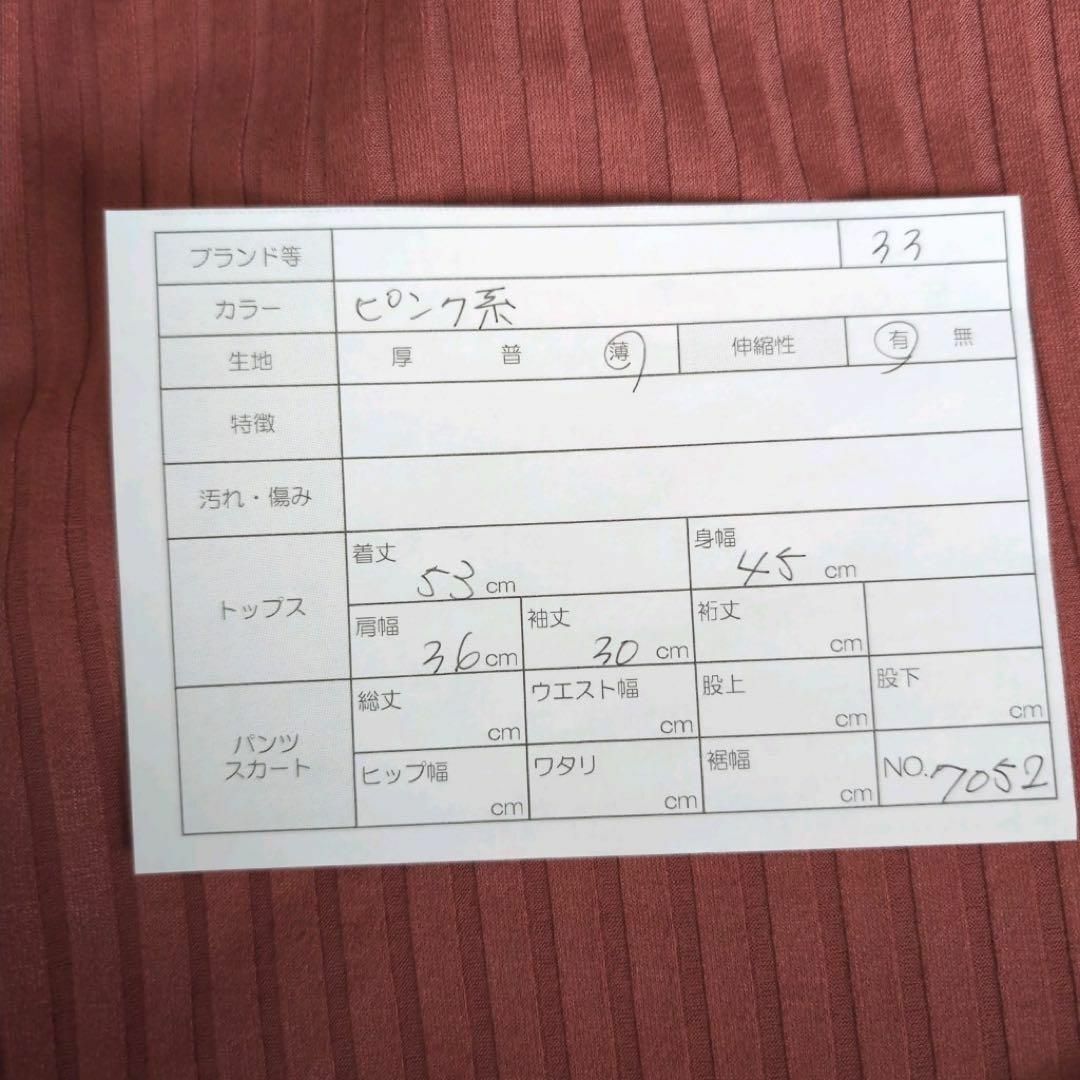 ブランド等 33
カラー ピンク系
生地 厚 普 薄 伸縮性 有 無
特徴
汚れ・傷み
トップス 着丈 53 cm 身幅 45 cm
肩幅 36 cm 袖丈 30 cm 裄丈 cm
パンツ スカート 総丈 cm ウエスト幅 cm 股上 cm 股下 cm
ヒップ幅 cm ワタリ cm 裾幅 cm NO. 7052